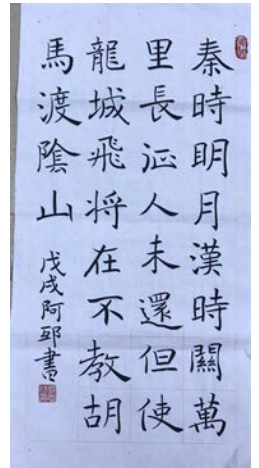 秦時明月漢時關萬
里長征人未還但使
龍城飛将在不教胡
馬渡陰山
戊戌阿邳書